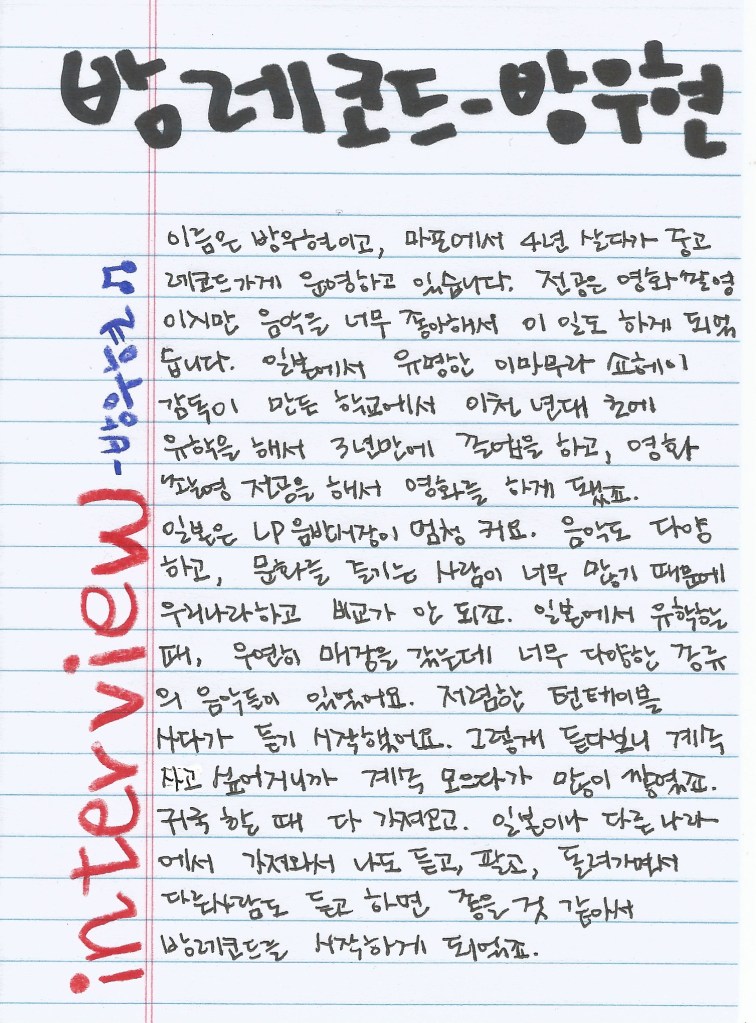 방레코드-방우현
interview -방우현
이름은 방우현이고, 마포에서 4년 살다가 중고
레코드가게 운영하고 있습니다. 전공은 영화촬영
이지만 음악을 너무 좋아해서 이 일도 하게 되었
습니다. 일본에서 유명한 이마무라 쇼헤이
감독이 만든 학교에서 이천 년대 초에
유학을 해서 3년만에 졸업을 하고, 영화
촬영 전공을 해서 영화를 하게 됐죠.
일본은 LP 음반매장이 엄청 커요. 음악도 다양
하고, 문화를 즐기는 사람이 너무 많기 때문에
우리나라하고 비교가 안 되죠. 일본에서 유학할
때, 우연히 매장을 갔는데 너무 다양한 종류
의 음악들이 있었어요. 저렴한 턴테이블
사다가 듣기 시작했어요. 그렇게 듣다보니 계속
사고 싶어지니까 계속 모으다가 많이 쌓였죠.
귀국 할 때 다 가져오고. 일본이나 다른 나라
에서 가져와서 나도 듣고, 팔고, 돌려가면서
다른사람도 듣고 하면 좋을 것 같아서
방레코드를 시작하게 되었죠.